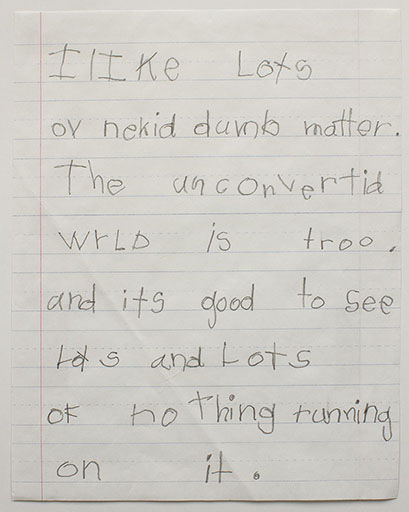 I lIKe Lots
ov nekid dumb matter.
The unconvertid
WrLD is troo.
and its good to see
Lots and Lots
of no Thing running
on it.